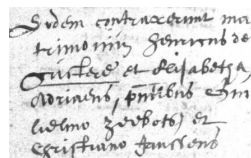 Eidem contraxerunt ma
trimonium Henricus de
Custere et Elisabetha
Adriaens, pntibus Gui
lielmo Zeebots, et
Christiano Janssens